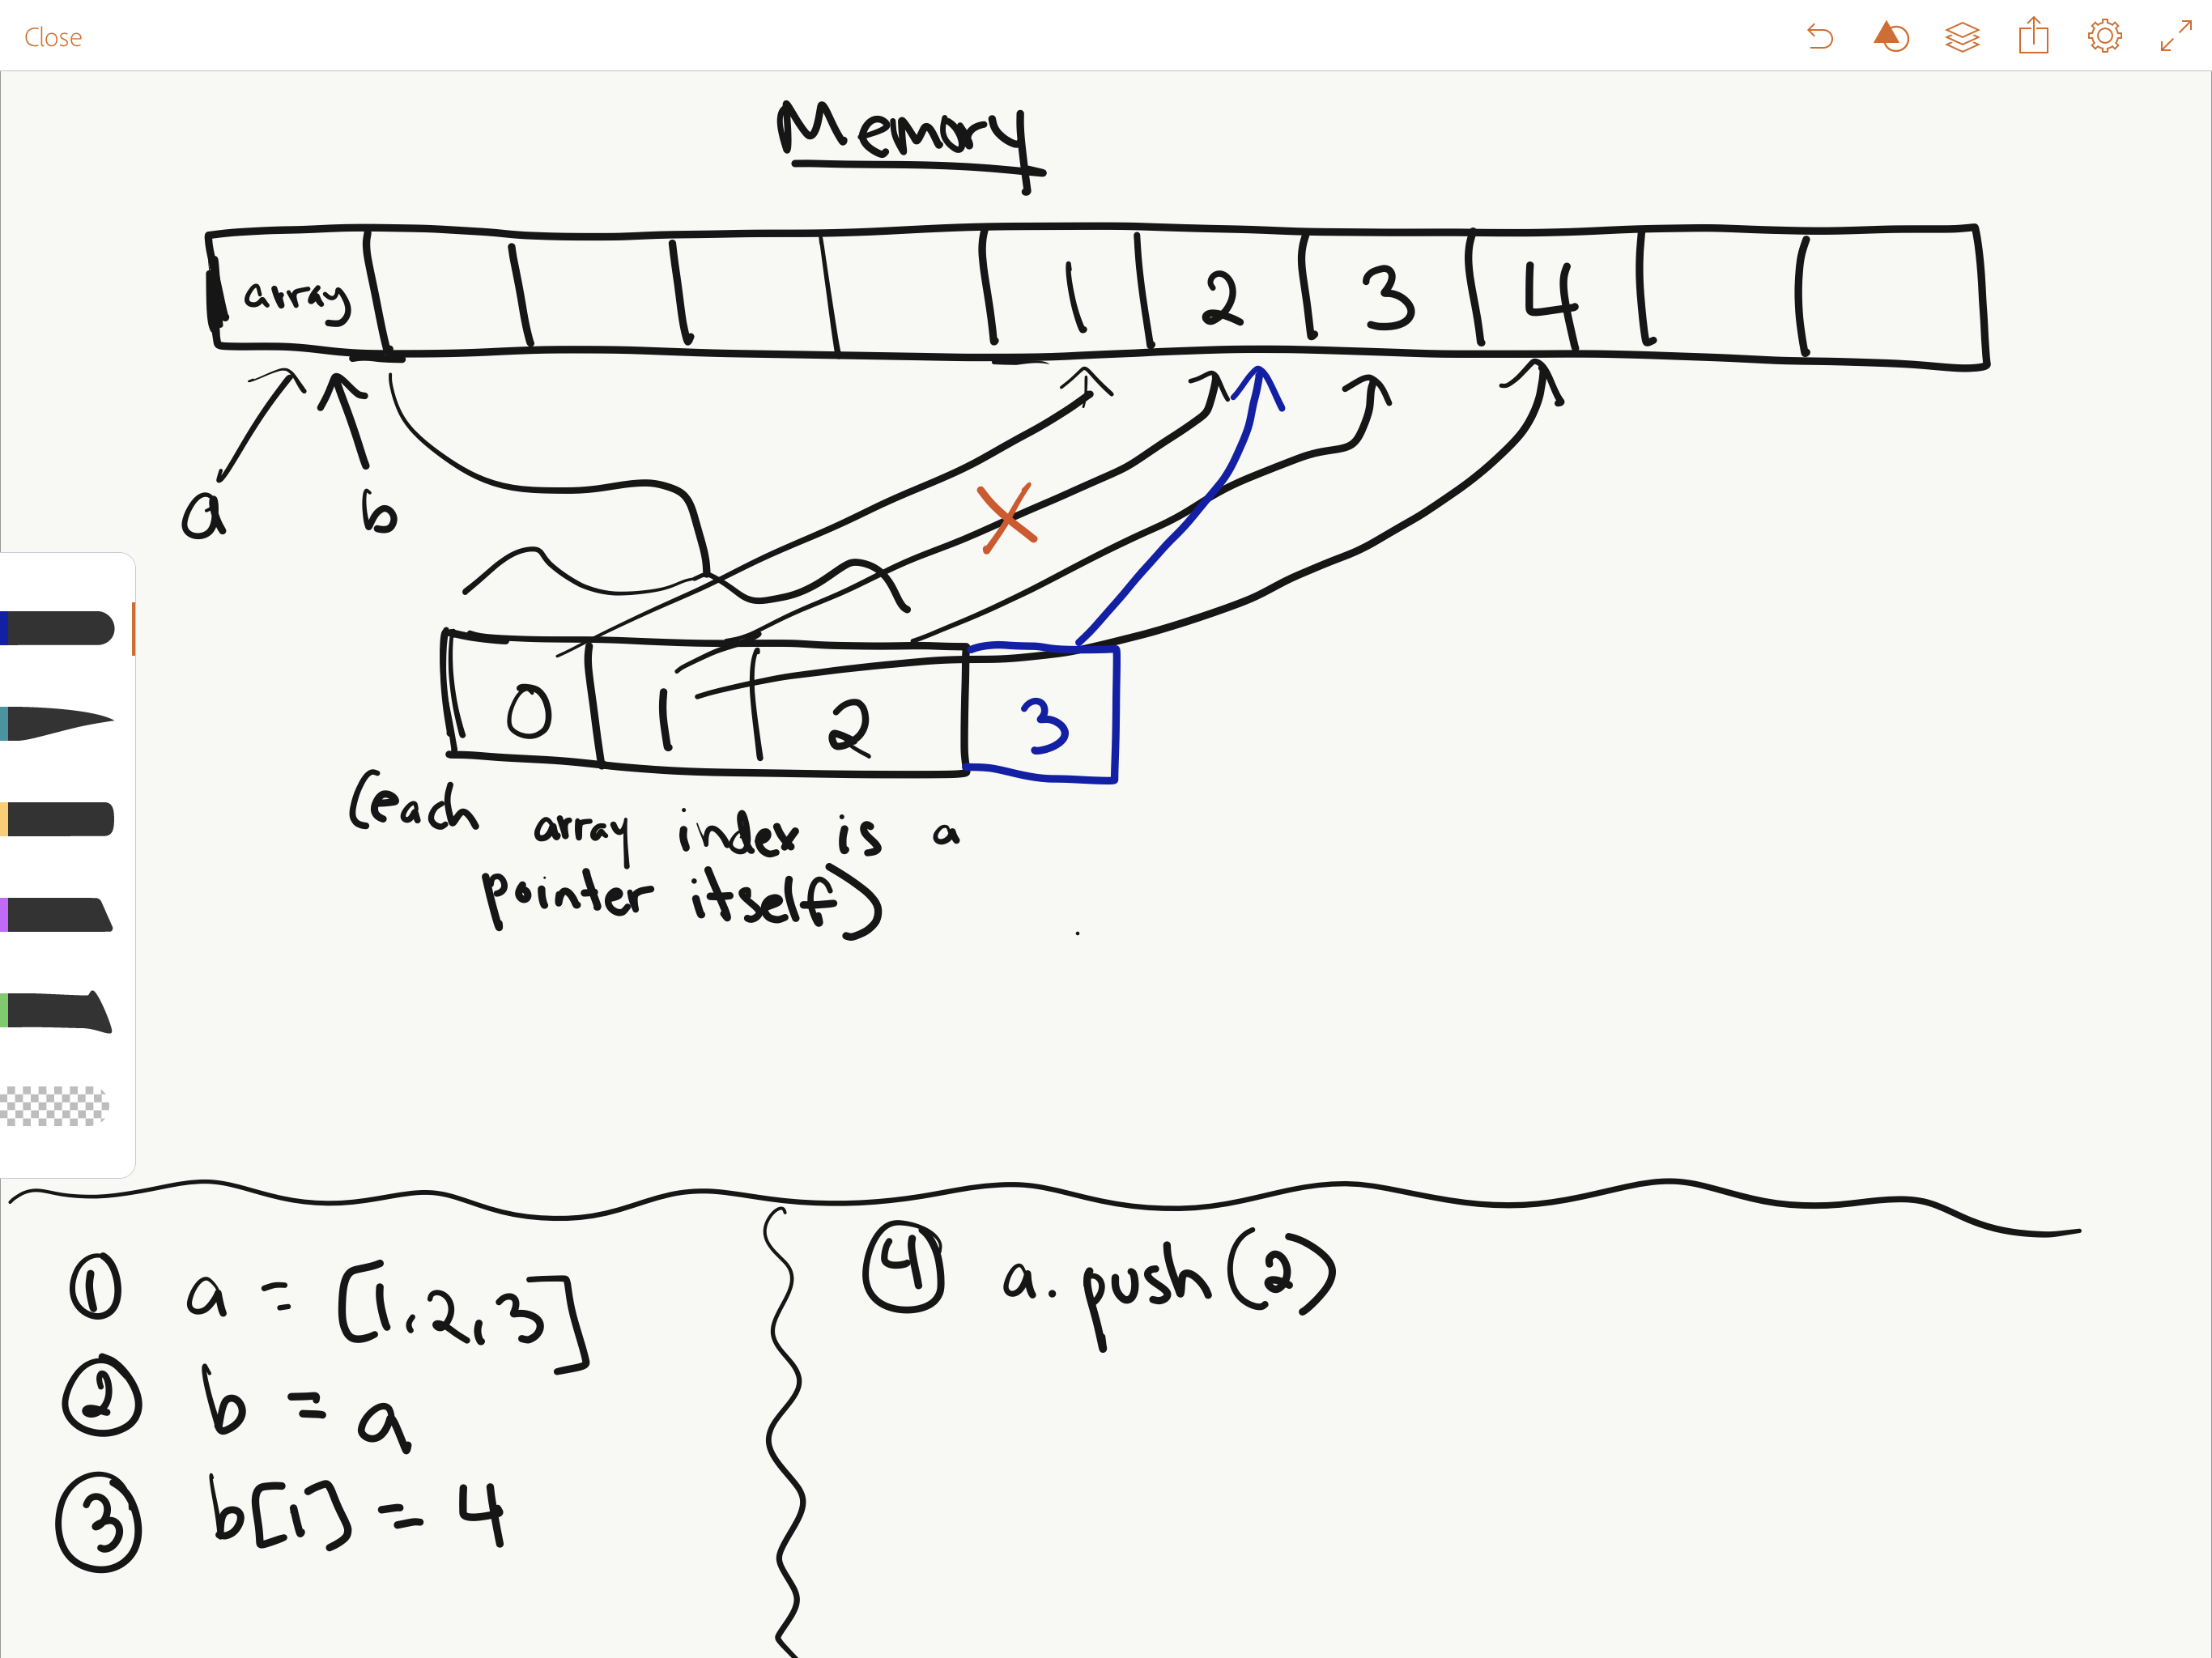 Close
Memory
array 1 2 3 4
a b
0 1 2 3
(each array index is a
pointer itself)
① a = [1,2,3]
② b = a
③ b[1] = 4
④ a.push(2)